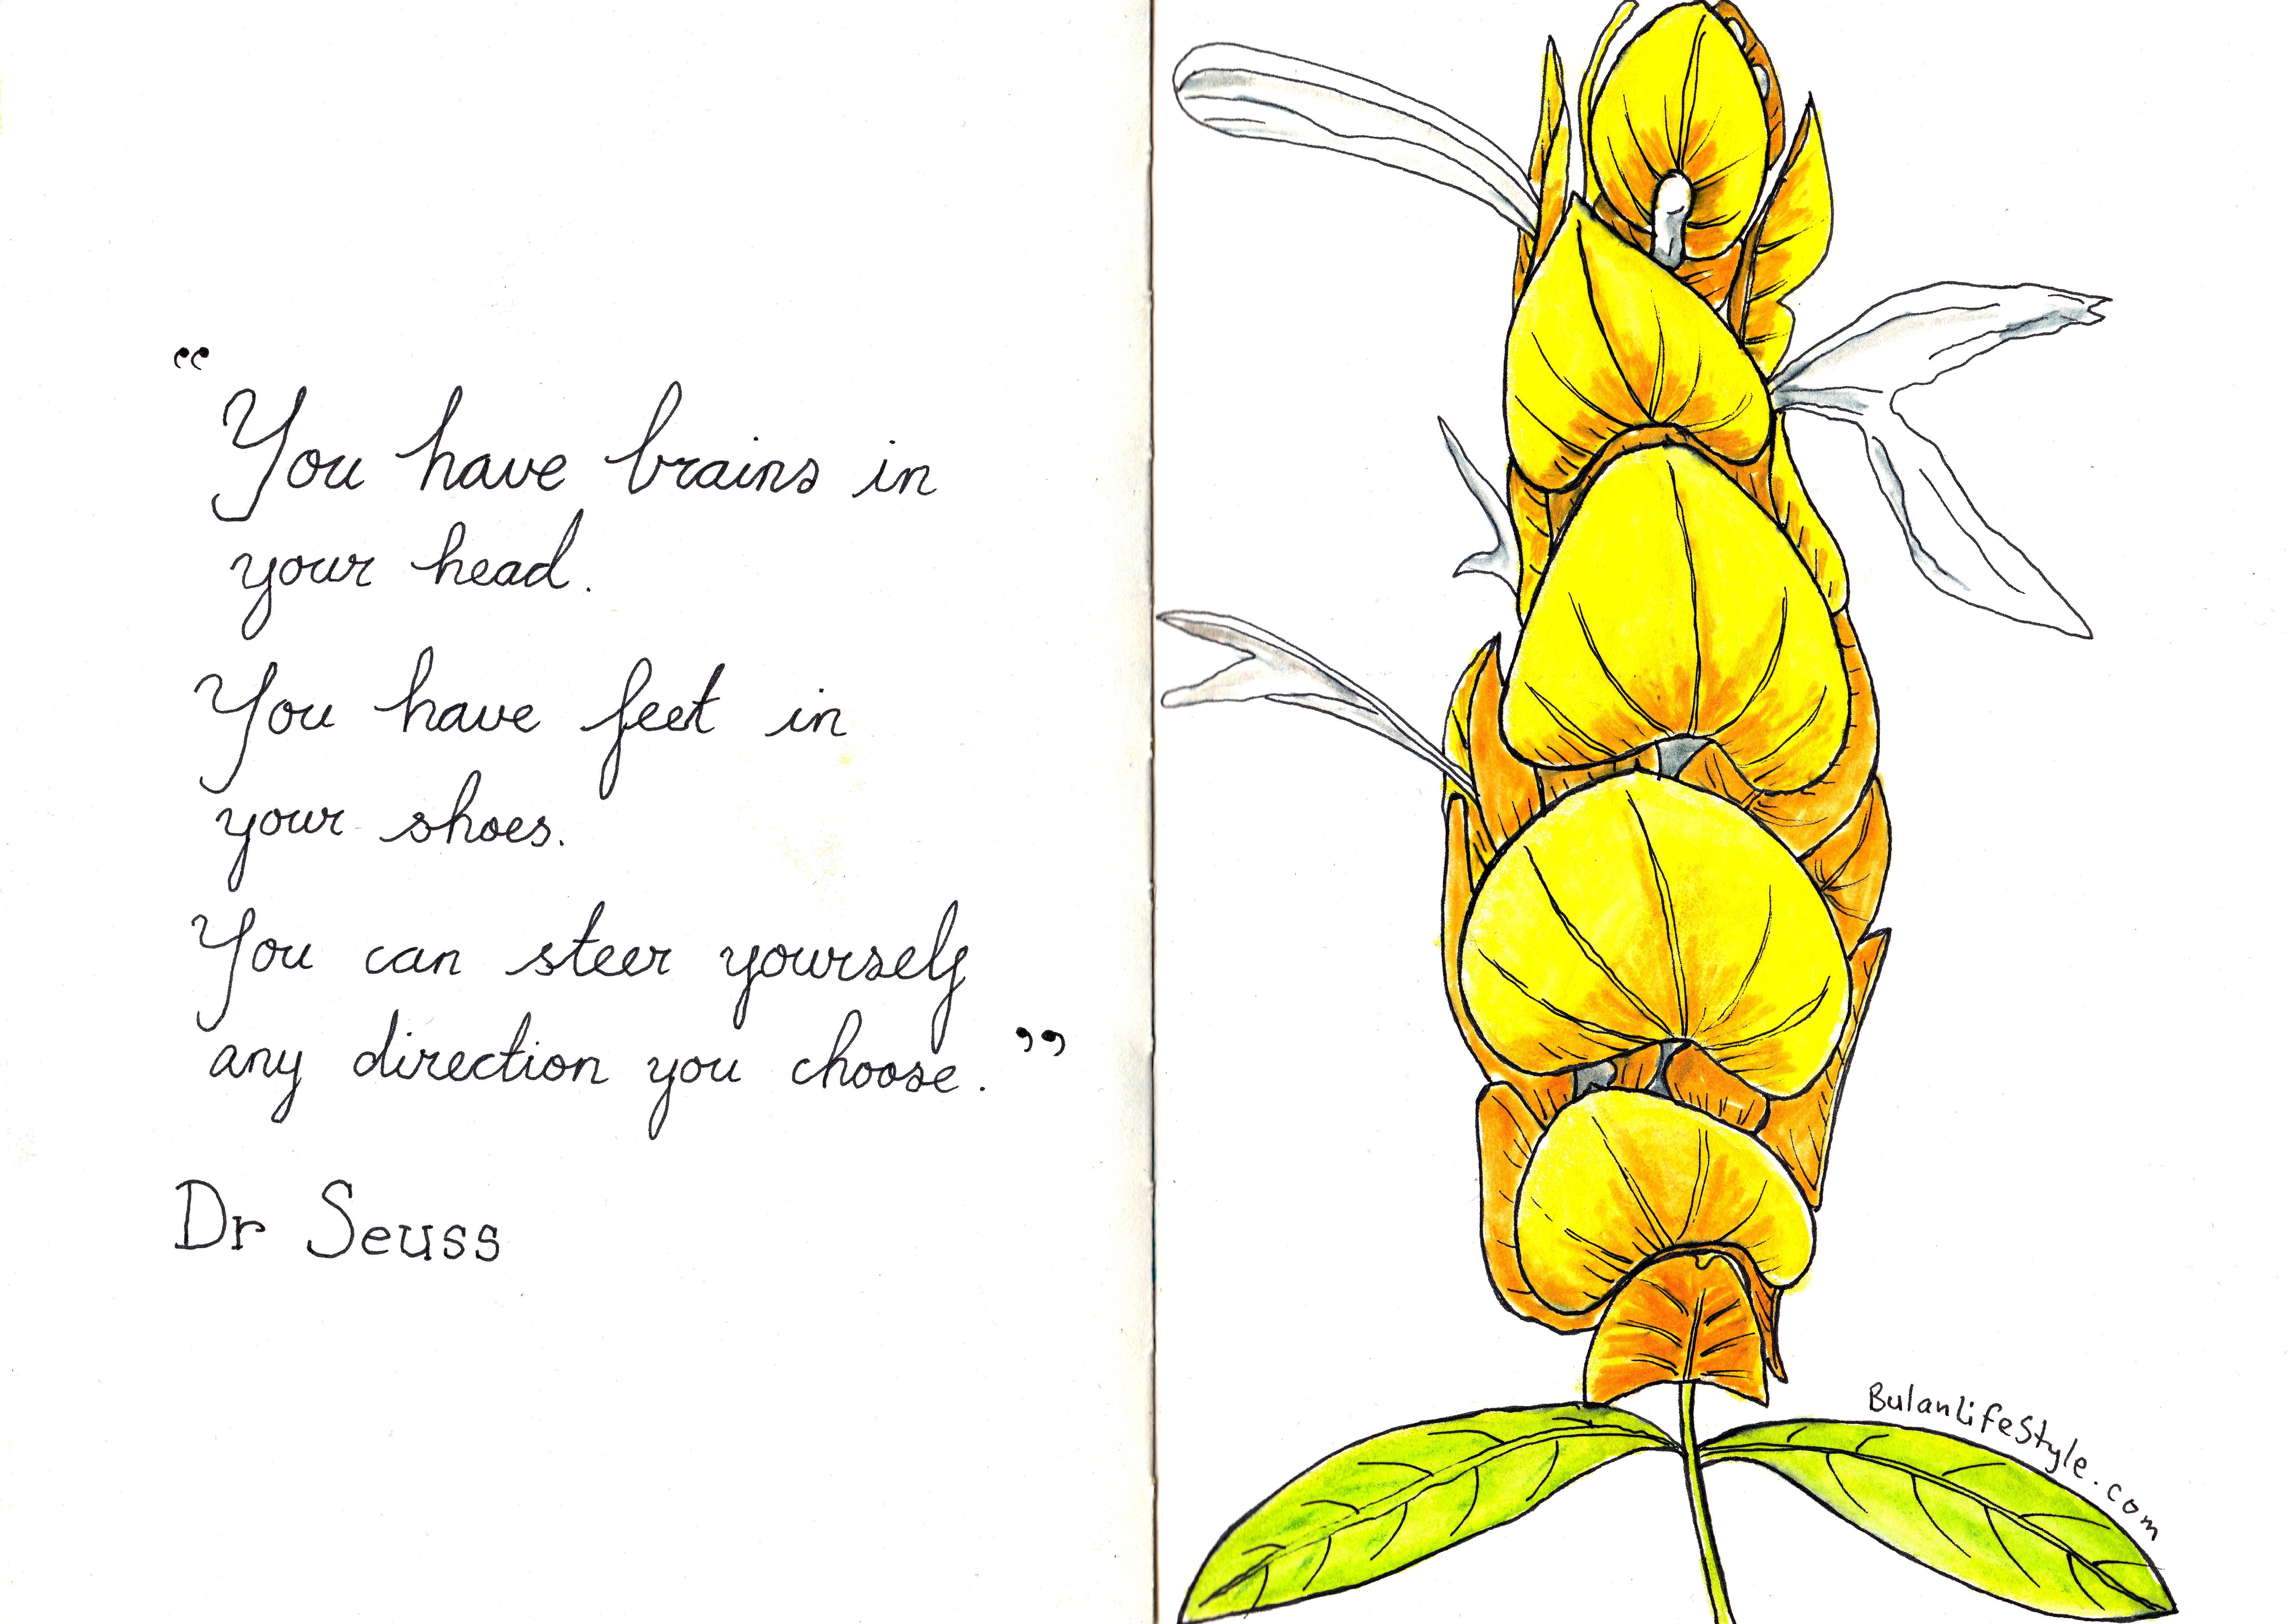 “You have brains in
your head.
You have feet in
your shoes.
You can steer yourself
any direction you choose.”
Dr Seuss
BulanLifeStyle.com